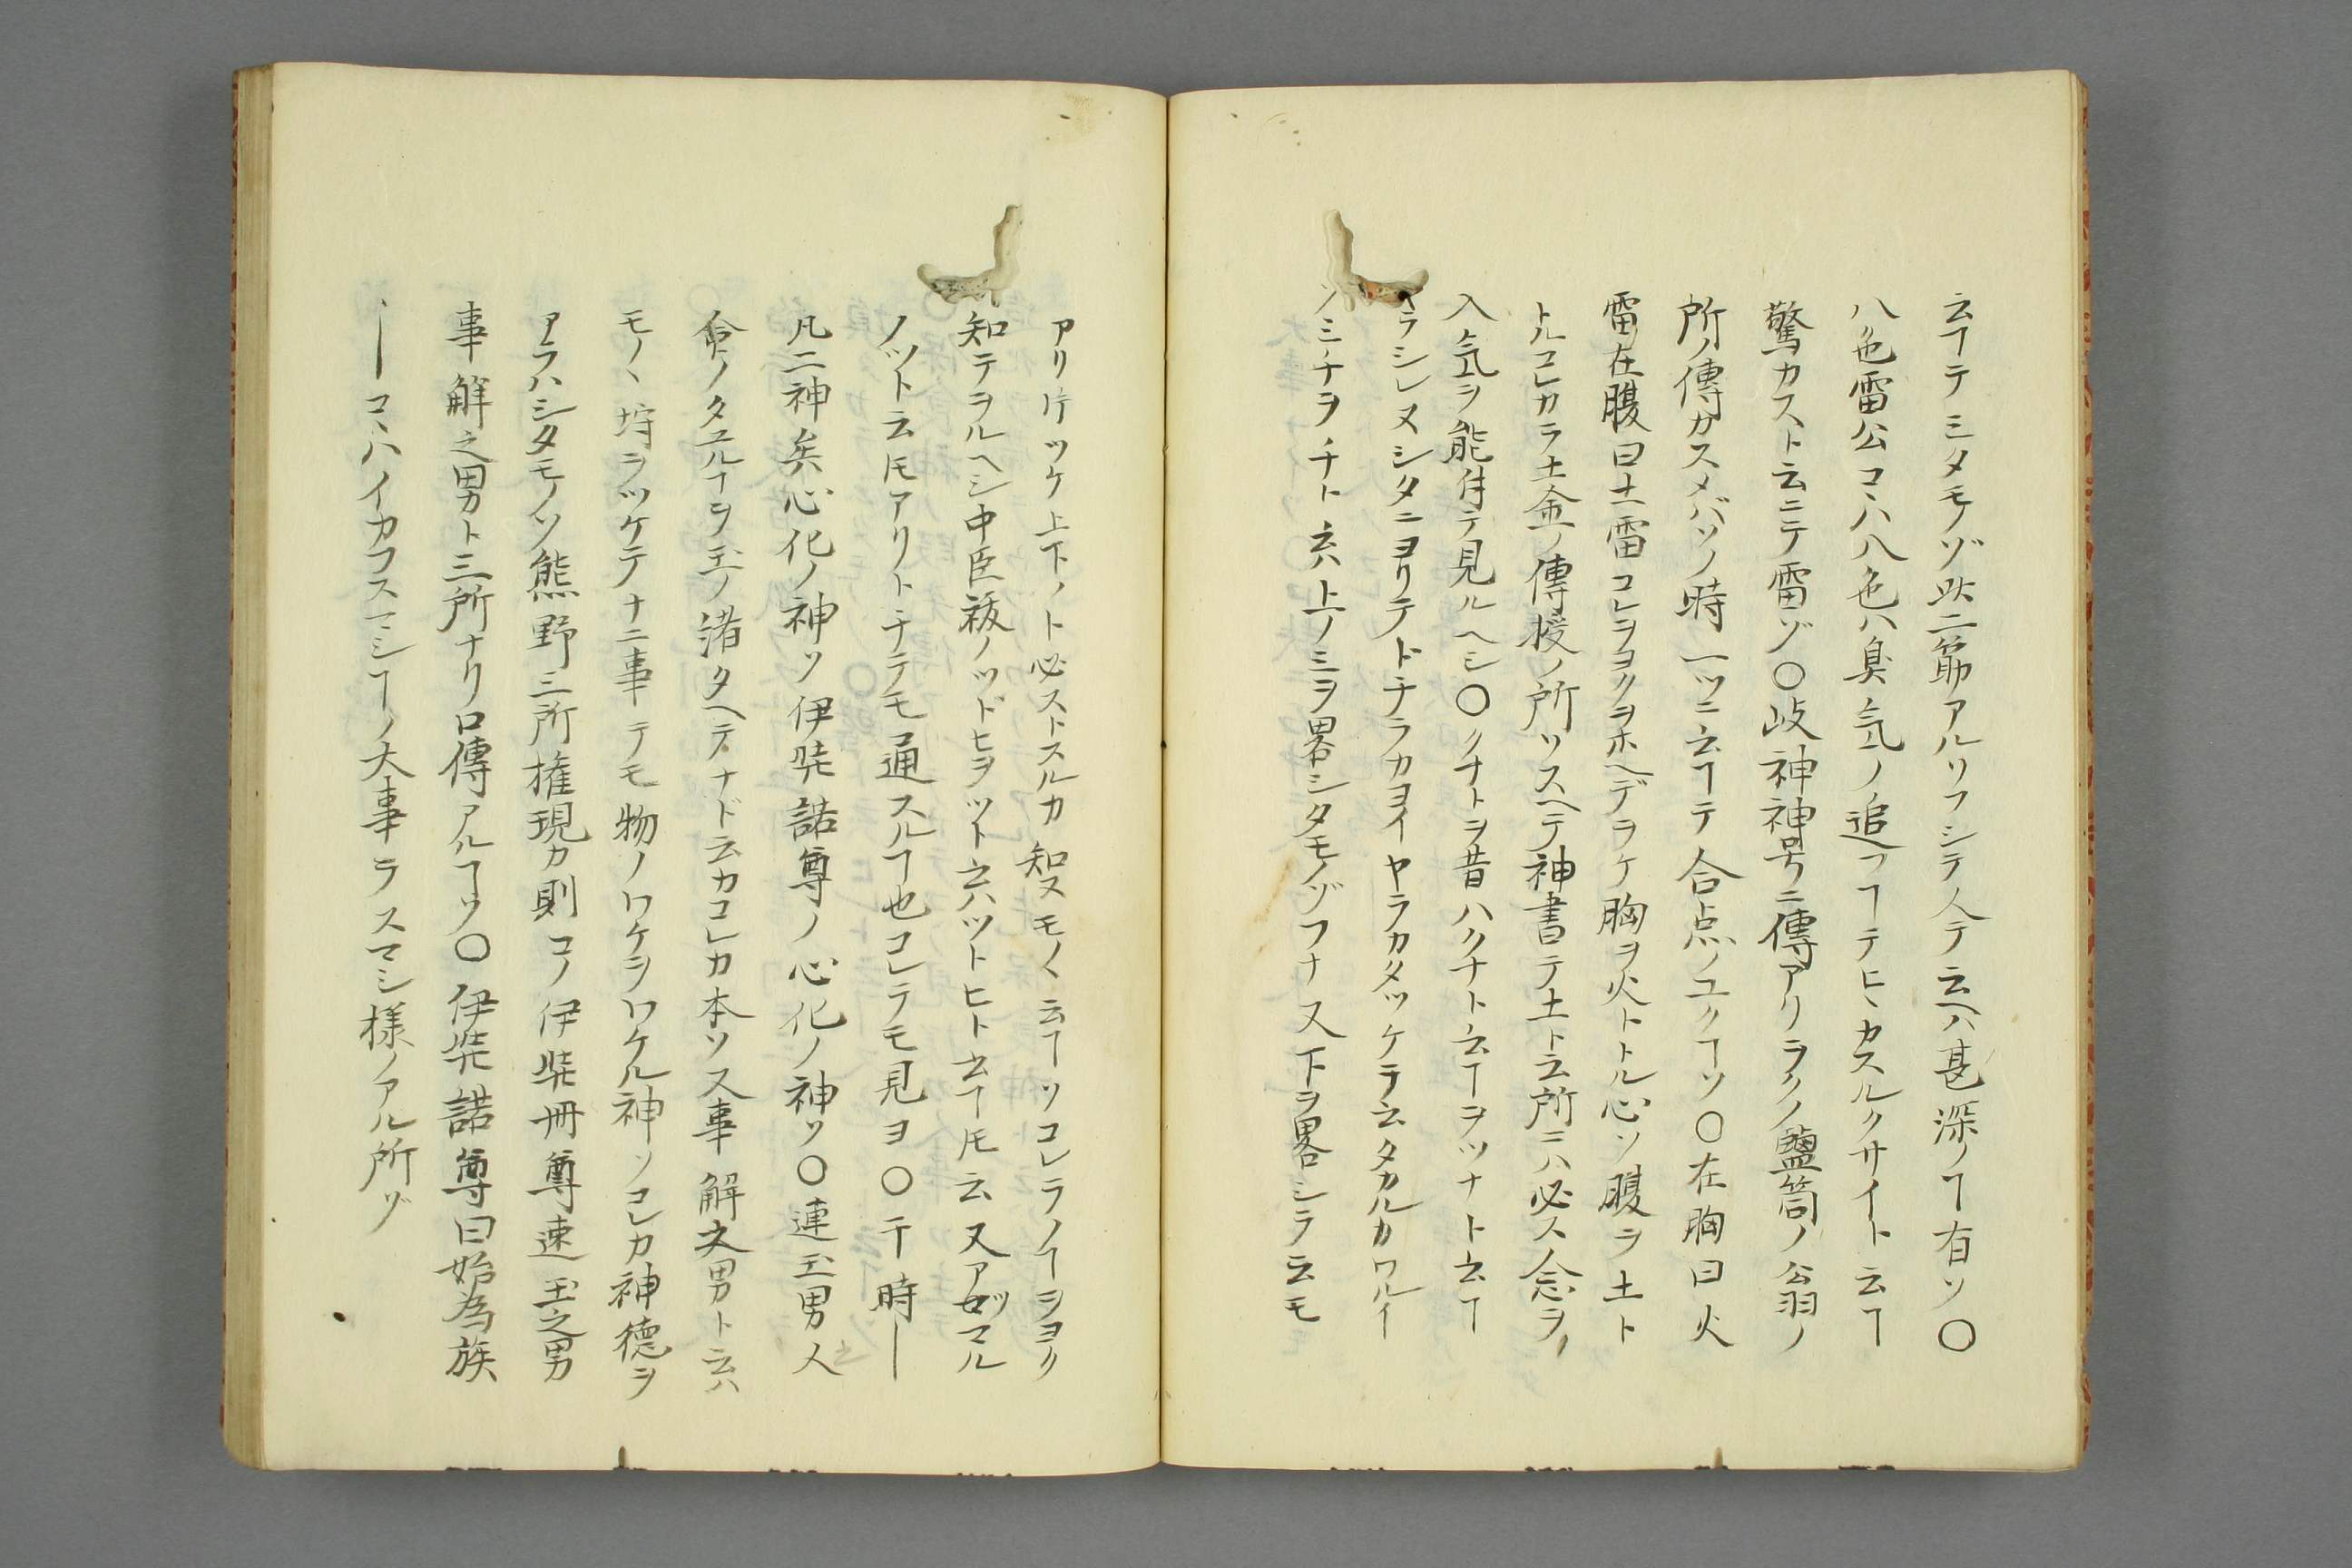 云ヿテミタモノゾ此二筋アルソフシテ人テ云ヘハ甚深ノヿ有ソ〇
八色雷公コヽハ八色ハ臭気ノ追フヿテヒヽカスルクサイト云ヿ
驚カスト云ニテ雷ゾ〇岐神神号ニ傳アリラクノ鹽筒ノ公羽ノ
所ノ傳カスメバソノ時一ツニ云ヿテ合点ノユクヿソ〇在胸曰火
雷在腹曰土雷コレヲヨクヲホヘデヲケ胸ヲ火トトル心ソ腹ヲ土ト
トルコレカラ土金ノ傳授ノ所ソスヘテ神書テ土ト云所ニハ必ス念ヲノ
入気ヲ能付テ見ルヘシ〇クナトヲ昔ハクナト云ヿヲツナト云ヿ
ラシレヌシタニヨリテドチラカヨイヤラカタツケテ云タカルカワルイ
ソミチヲチト云ハ上ノミヲ畧シタモノゾフナ又下ヲ畧シラ云モ
アリ片ツケ上下ノト必ストスルカ知ヌモノヽ云ヿソコレラノヿヲヨク
知テヲルヘシ中臣祓ノツドヒヲツト云ハツトヒト云ヿ𪜈云又アツマル
ノツト云𪜈アリトチテモ通スルヿ也コレテモ見ヨ〇于時―
凡二神矣心化ノ神ソ伊弉諾尊ノ心化ノ神ソ〇連玉男人
命ノタユルナヲ玉ノ渚タヘテナド云カコレカ本ソス事解之男ト云ハ
モノヽ埒ヲツケテナニ事テモ物ノワケヲワケル神ソコレカ神徳ヲ
アラハシタモノソ熊野三所権現カ則コノ伊弉冊尊速玉之男
事解之男ト三所ナリ口傳アルヿソ〇伊弉諾尊曰始為族
―コヽハイカフスマシヿノ大事ラスマシ様ノアル所ゾ